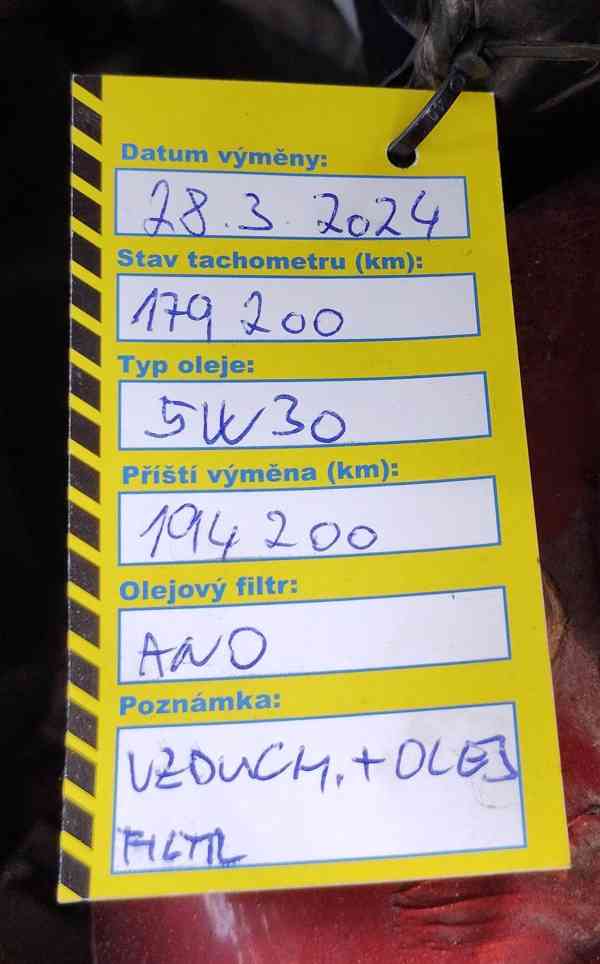 Datum výměny:
28.3.2024
Stav tachometru (km):
179 200
Typ oleje:
5W30
Příští výměna (km):
194 200
Olejový filtr:
ANO
Poznámka:
VZDUCH. + OLEJ
FILTR